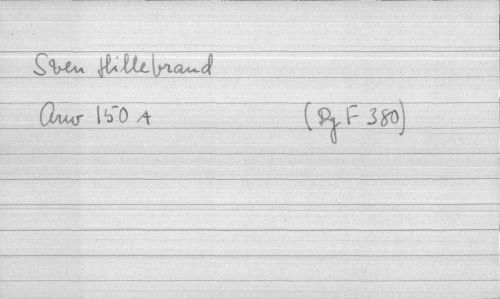 Sven Hillebrand
Arw 150 A (Dg F 380)